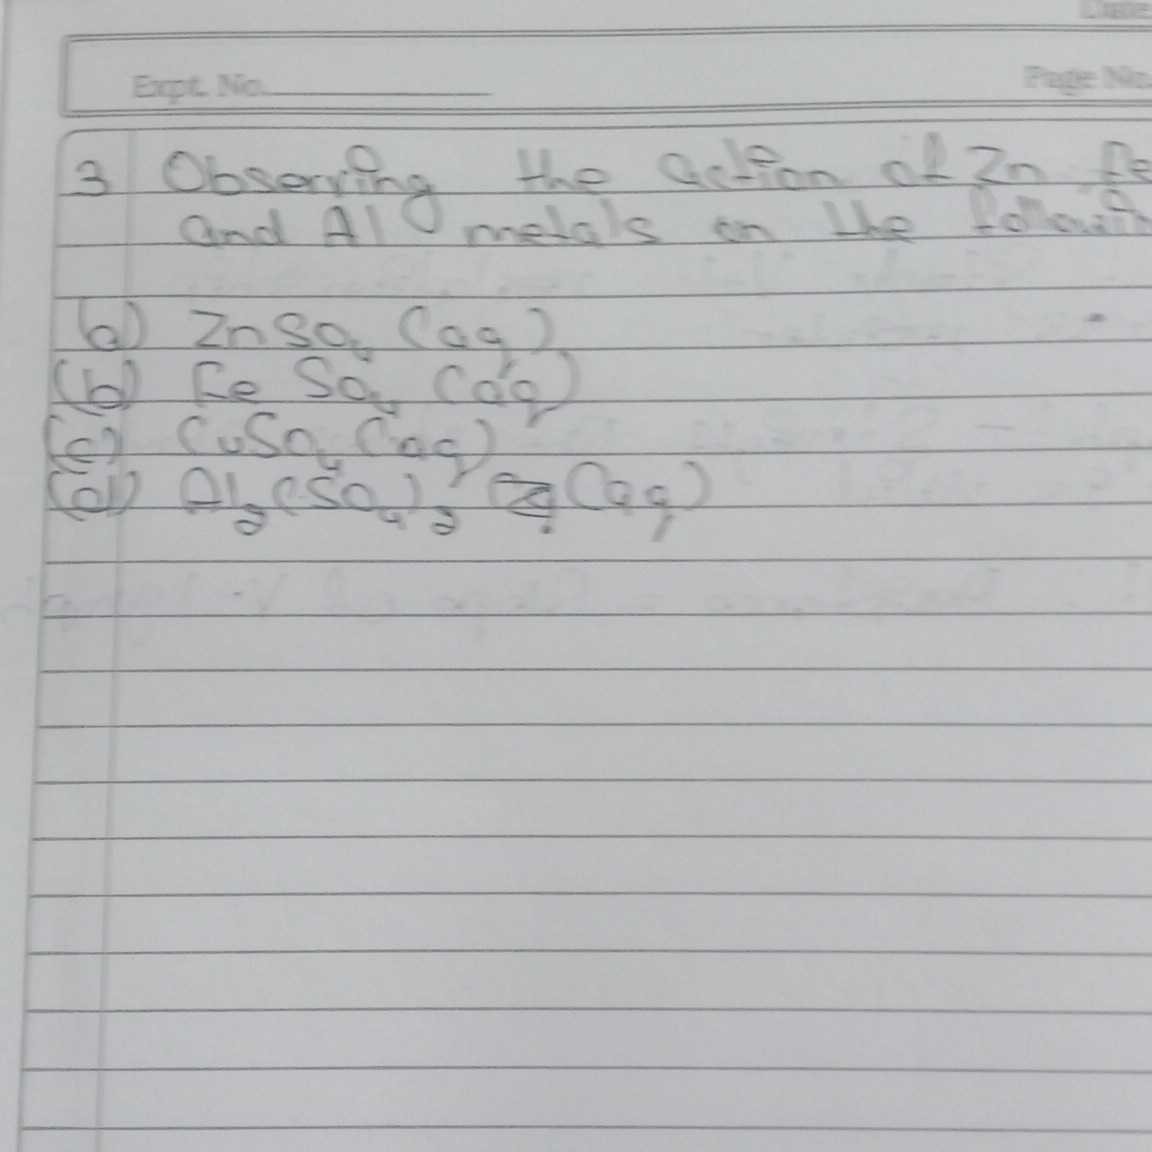 Date
Expt. No.
Page No.
3 Observing the action of Zn Fe
and Al metals on the
a) ZnSO4 (aq)
(b) Fe SO4 (aq)
(c) CuSO4 (aq)
(d) Al2(SO4)3 (aq)